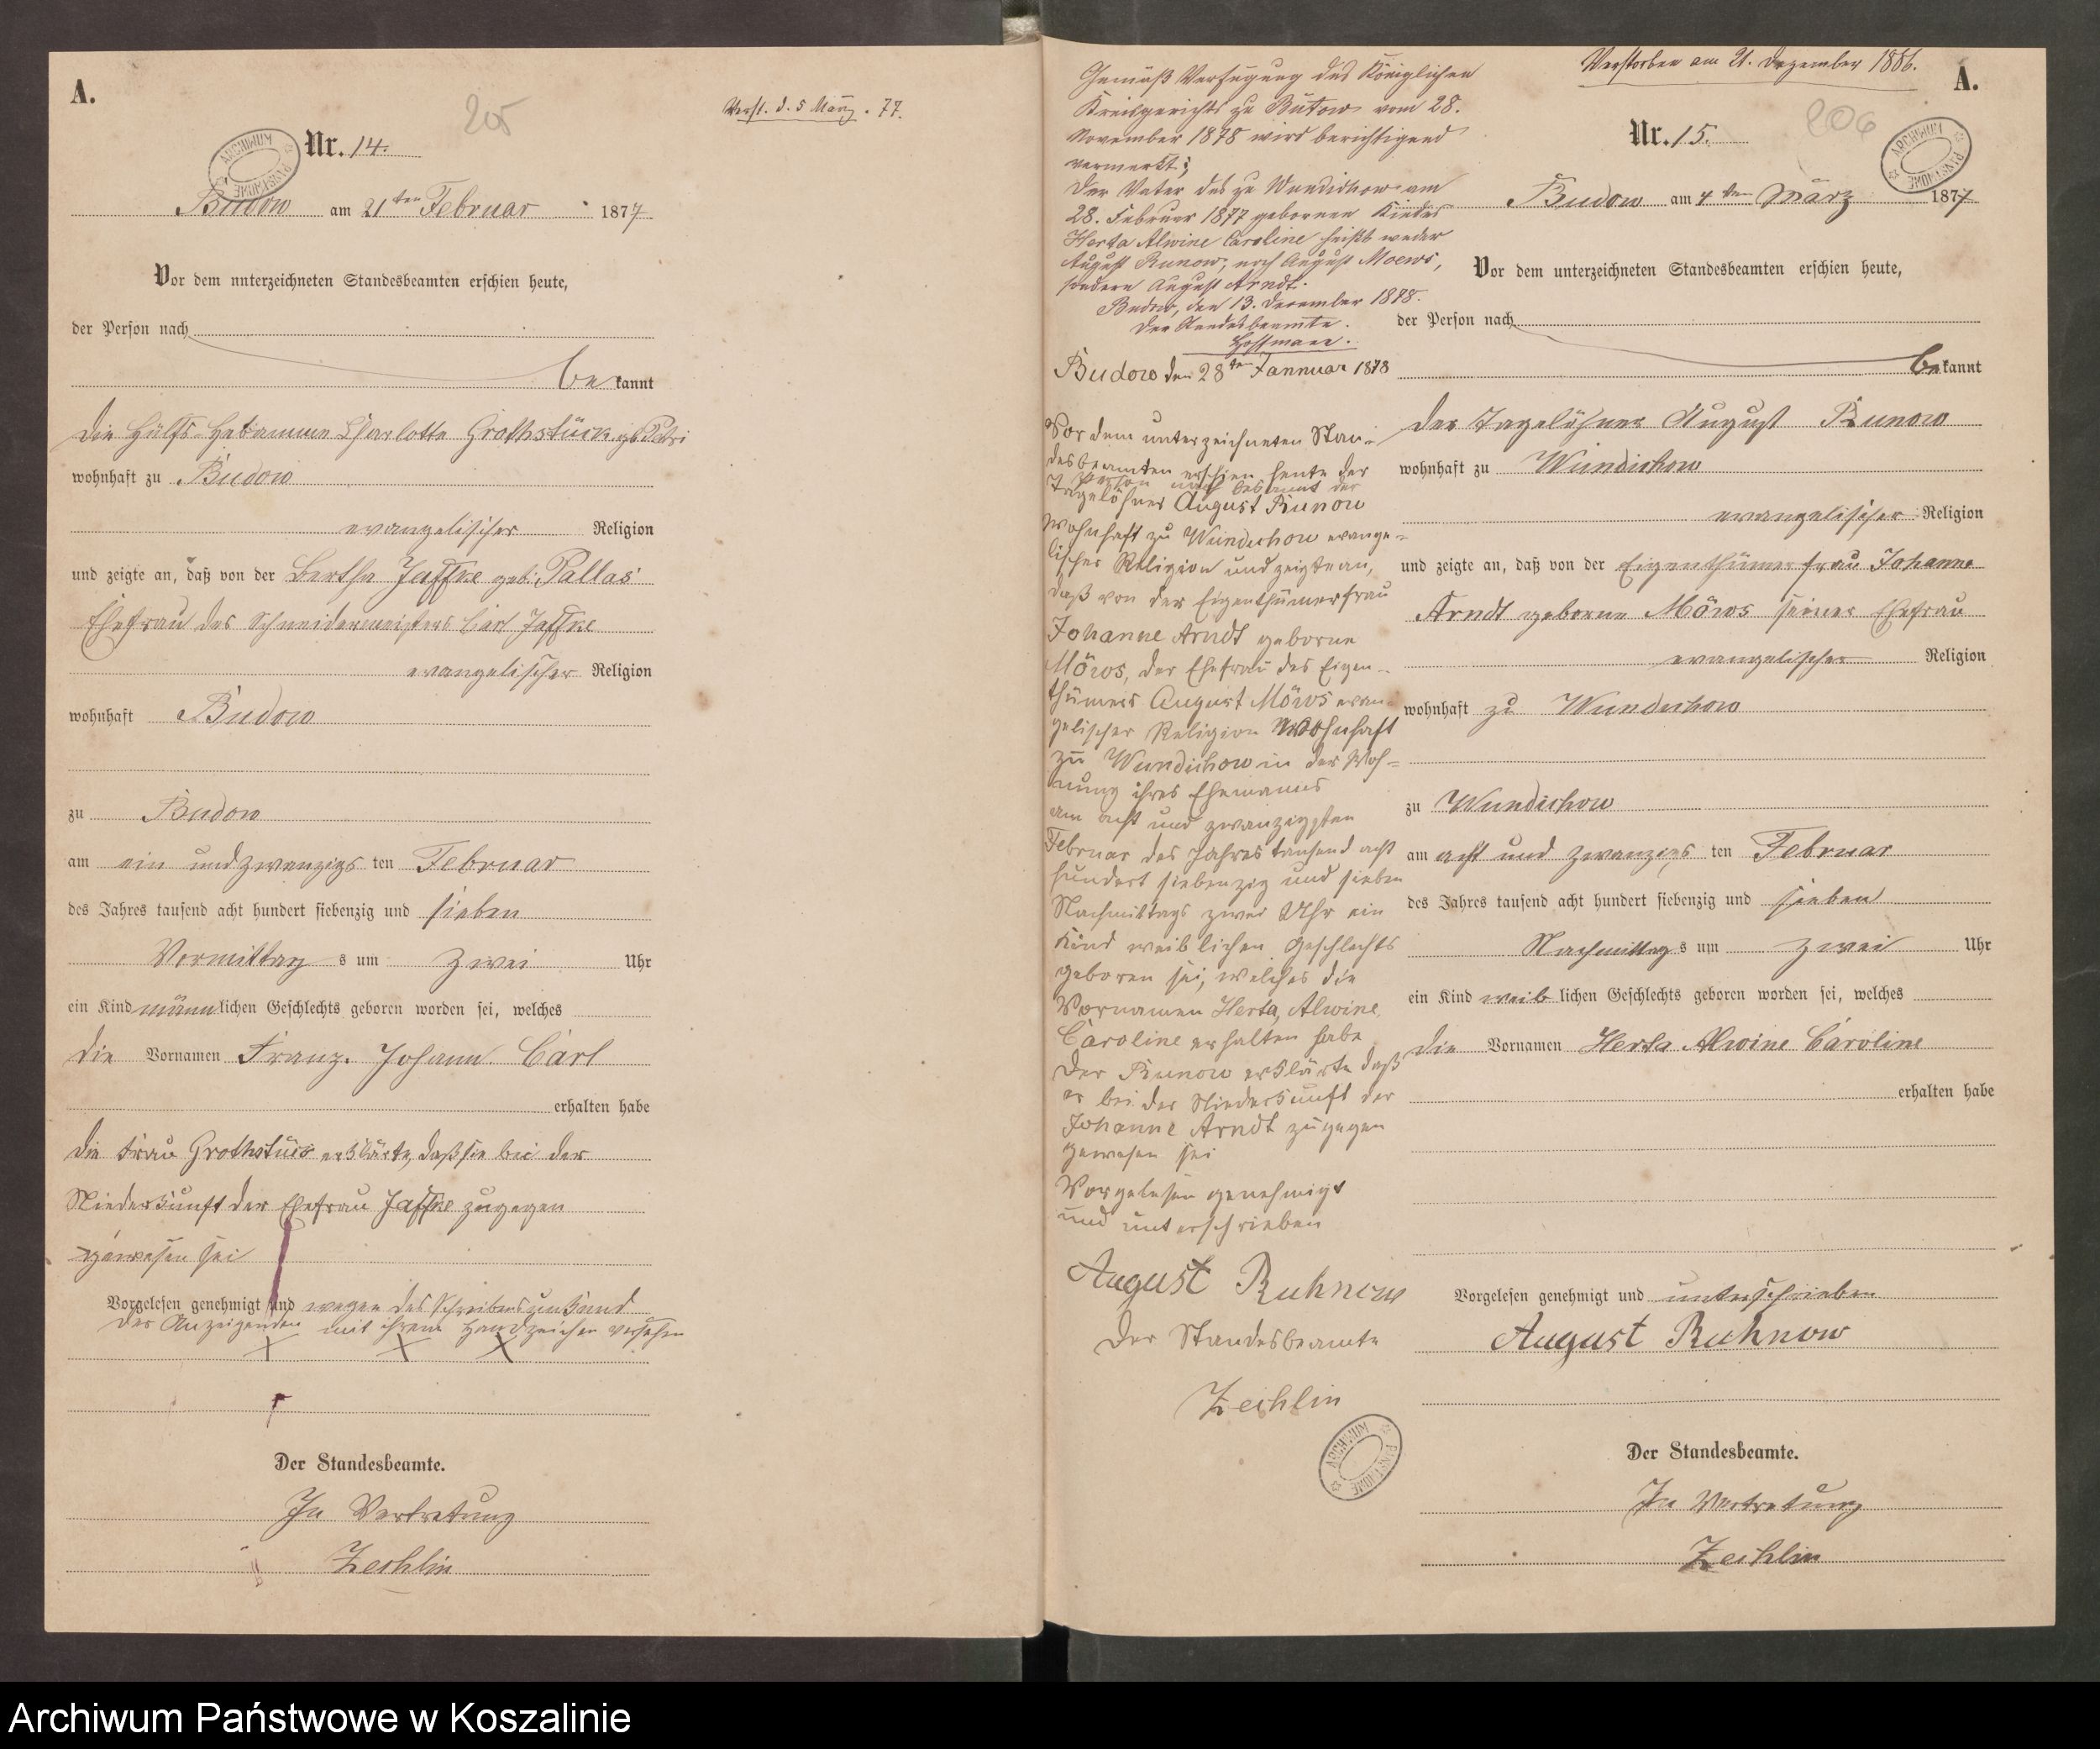 A.
205
Verst. d. 5 März. 77.
Nr. 14.
ARCHIWUM PAŃSTWOWE
Budow am 21ten Februar 1877
Vor dem unterzeichneten Standesbeamten erschien heute,
der Person nach
be kannt
die Hülfs-Hebamme Charlotte Grothstück geb Petri
wohnhaft zu Budow
evangelischer Religion
und zeigte an, daß von der Bertha Jaffke geb: Pallas
Ehefrau des Schneidermeisters Carl Jaffke
evangelischer Religion
wohnhaft Budow
zu Budow
am ein und zwanzigs ten Februar
des Jahres tausend acht hundert siebenzig und sieben
Vormittag s um zwei Uhr
ein Kind männlichen Geschlechts geboren worden sei, welches
die Vornamen Franz. Johann Carl
erhalten habe
die Frau Grothstück erklärte, daß sie bei der
Niederkunft der Ehefrau Jaffke zugegen
gewesen sei
Vorgelesen genehmigt und wegen des Schreibensunkund
der Anzeigenden mit ihrem Handzeichen versehen
X X X
Der Standesbeamte.
In Vertretung
Zechlin
Gemäß Verfügung des Königlichen
Kreisgerichts zu Bütow vom 28.
November 1878 wird berichtigend
vermerkt:
Der Vater des zu Wundichow am
28. Februar 1877 gebornen Kindes
Herta Alwine Caroline heißt weder
August Runow, noch August Moews,
sondern August Arndt.
Budow, den 13. December 1878.
Der Standesbeamte.
Hoffmann.
Budow den 28ten Jannuar 1878
Vor dem unterzeichneten Stan-
desbeamten erschien heute der
Person nach bekannt der
Tagelöhner August Runow
wohnhaft zu Wundichow evange-
lischer Religion und zeigte an,
daß von der Eigenthümerfrau
Johanne Arndt geborne
Möws, der Ehefrau des Eigen-
thümers August Möws evan-
gelischer Religion wohnhaft
zu Wundichow in der Woh-
nung ihres Ehemanns
am acht und zwanzigsten
Februar des Jahres tausend acht
hundert siebenzig und sieben
Nachmittags zwei Uhr ein
Kind weiblichen Geschlechts
geboren sei, welches die
Vornamen Herta, Alwine
Caroline erhalten habe
Der Runow erklärte daß
er bei der Niederkunft der
Johanne Arndt zugegen
gewesen sei
Vorgelesen genehmigt
und unterschrieben
August Ruhnow
Der Standesbeamte
Zechlin
ARCHIWUM PAŃSTWOWE
Verstorben am 21. Dezember 1886.
A.
206
Nr. 15.
ARCHIWUM PAŃSTWOWE
Budow am 4ten März 1877
Vor dem unterzeichneten Standesbeamten erschien heute,
der Person nach
bekannt
der Tagelöhner August Runow
wohnhaft zu Wundichow
evangelischer Religion
und zeigte an, daß von der Eigenthümerfrau Johanne
Arndt geborne Möws seiner Ehefrau
evangelischer Religion
wohnhaft zu Wundichow
zu Wundichow
am acht und zwanzigs ten Februar
des Jahres tausend acht hundert siebenzig und sieben
Nachmittag s um zwei Uhr
ein Kind weib lichen Geschlechts geboren worden sei, welches
die Vornamen Herta Alwine Caroline
erhalten habe
Vorgelesen genehmigt und unterschrieben
August Ruhnow
Der Standesbeamte.
In Vertretung
Zechlin
Archiwum Państwowe w Koszalinie